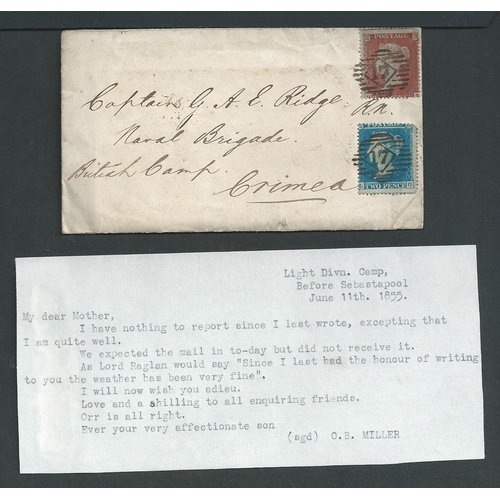 POSTAGE
Captain G. A. E. Ridge. R.N.
Naval Brigade.
British Camp.
Crimea
17
TWO PENCE
Light Divn. Camp,
Before Sebastapool
June 11th. 1855.
My dear Mother,
I have nothing to report since I last wrote, excepting that
I am quite well.
We expected the mail in to-day but did not receive it.
As Lord Raglan would say "Since I last had the honour of writing
to you the weather has been very fine".
I will now wish you adieu.
Love and a shilling to all enquiring friends.
Orr is all right.
Ever your very affectionate son
(sgd) O.B. MILLER